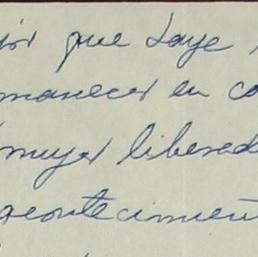 que
manecer en co
mujer liberad
acontecimien